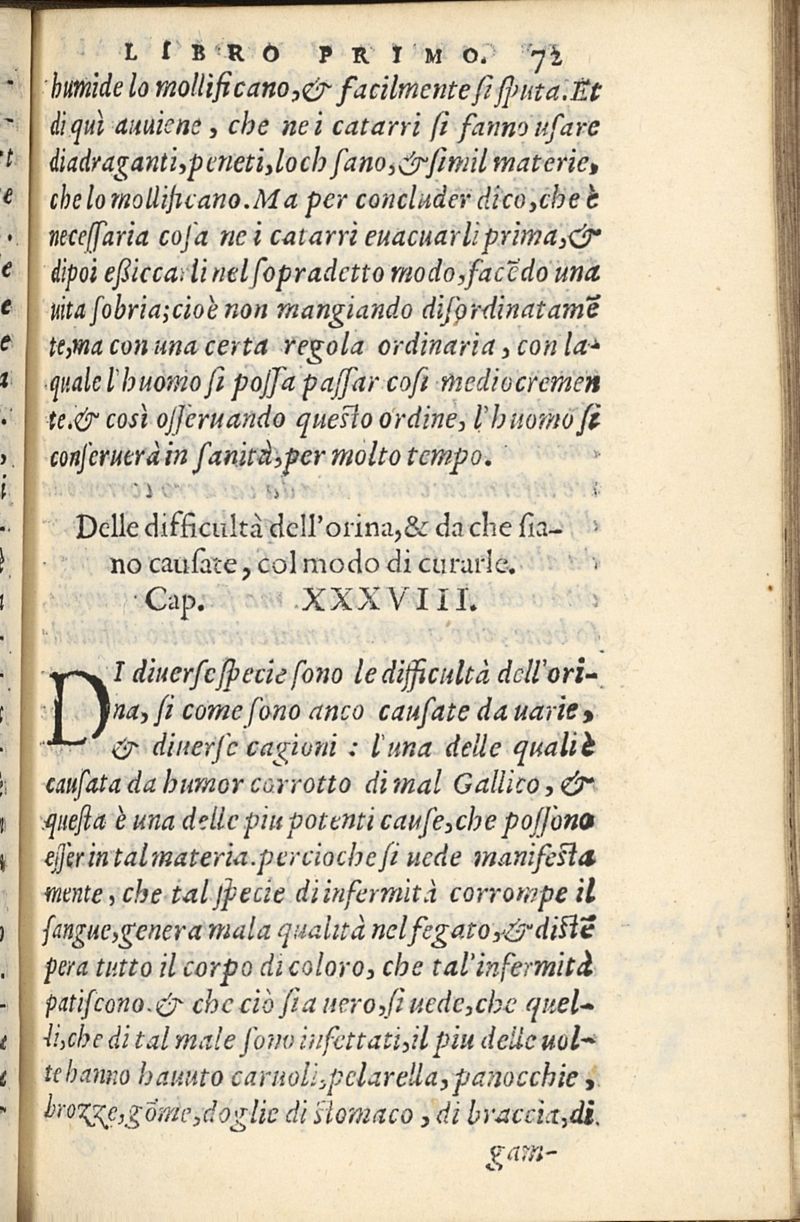 LIBRO PRIMO. 72
humide lo mollificano, & facilmente si sputa. Et
di quì auuiene, che ne i catarri si fanno usare
diadraganti, peneti, loch sano, & simil materie,
che lo mollificano. Ma per concluder dico, che è
necessaria cosa ne i catarri euacuarli prima, &
dipoi essiccarli nel sopradetto modo, facēdo una
uita sobria; cioè non mangiando disordinatamē
te, ma con una certa regola ordinaria, con la-
quale l'huomo si possa passar cosi mediocremen
te. & così osseruando questo ordine, l'huomo si
conseruerà in sanità, per molto tempo.
Delle difficultà dell'orina, & da che sia-
no causate, col modo di curarle.
Cap. XXXVIII.
DI diuerse specie sono le difficultà dell'ori-
na, si come sono anco causate da uarie,
& diuerse cagioni : l'una delle quali è
causata da humor corrotto di mal Gallico, &
questa è una delle piu potenti cause, che possono
esser in tal materia. percioche si uede manifesta
mente, che tal specie di infermità corrompe il
sangue, genera mala qualità nel fegato, & distē
pera tutto il corpo di coloro, che tal'infermità
patiscono. & che ciò sia uero, si uede, che quel-
li, che di tal male sono infettati, il piu delle uol-
te hanno hauuto caruoli, pelarella, panocchie,
brozze, gōme, doglie di stomaco, di braccia, di
gam-